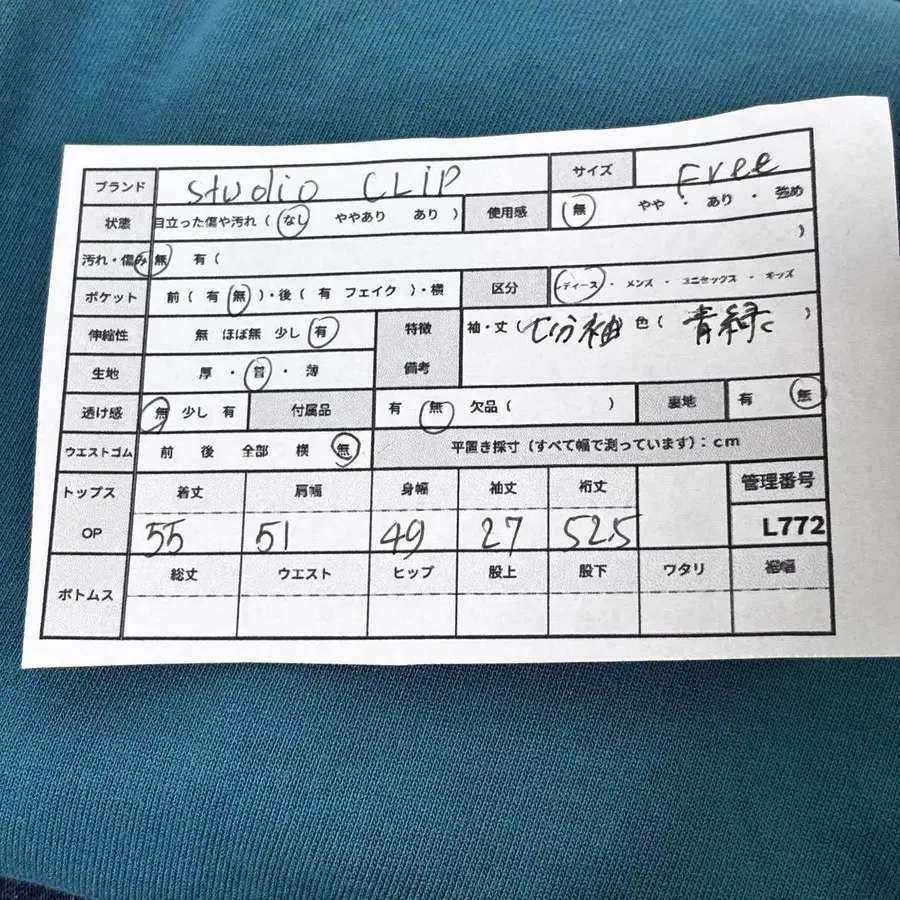 ブランド studio CLIP サイズ Free
状態 目立った傷や汚れ ( なし ややあり あり ) 使用感 無 やや ・ あり ・ 強め
汚れ・傷み 無 有 ( )
ポケット 前 ( 有 無 )・後 ( 有 フェイク )・横 区分 レディース ・ メンズ ・ ユニセックス ・ キッズ
伸縮性 無 ほぼ無 少し 有 特徴 袖・丈 ( 七分袖 色 ( 青緑 )
生地 厚 ・ 普 ・ 薄 備考
透け感 無 少し 有 付属品 有 無 欠品 ( ) 裏地 有 無
ウエストゴム 前 後 全部 横 無 平置き採寸 (すべて幅で測っています) : cm
トップス 着丈 肩幅 身幅 袖丈 裄丈 管理番号
OP 55 51 49 27 52.5 L772
ボトムス 総丈 ウエスト ヒップ 股上 股下 ワタリ 裾幅